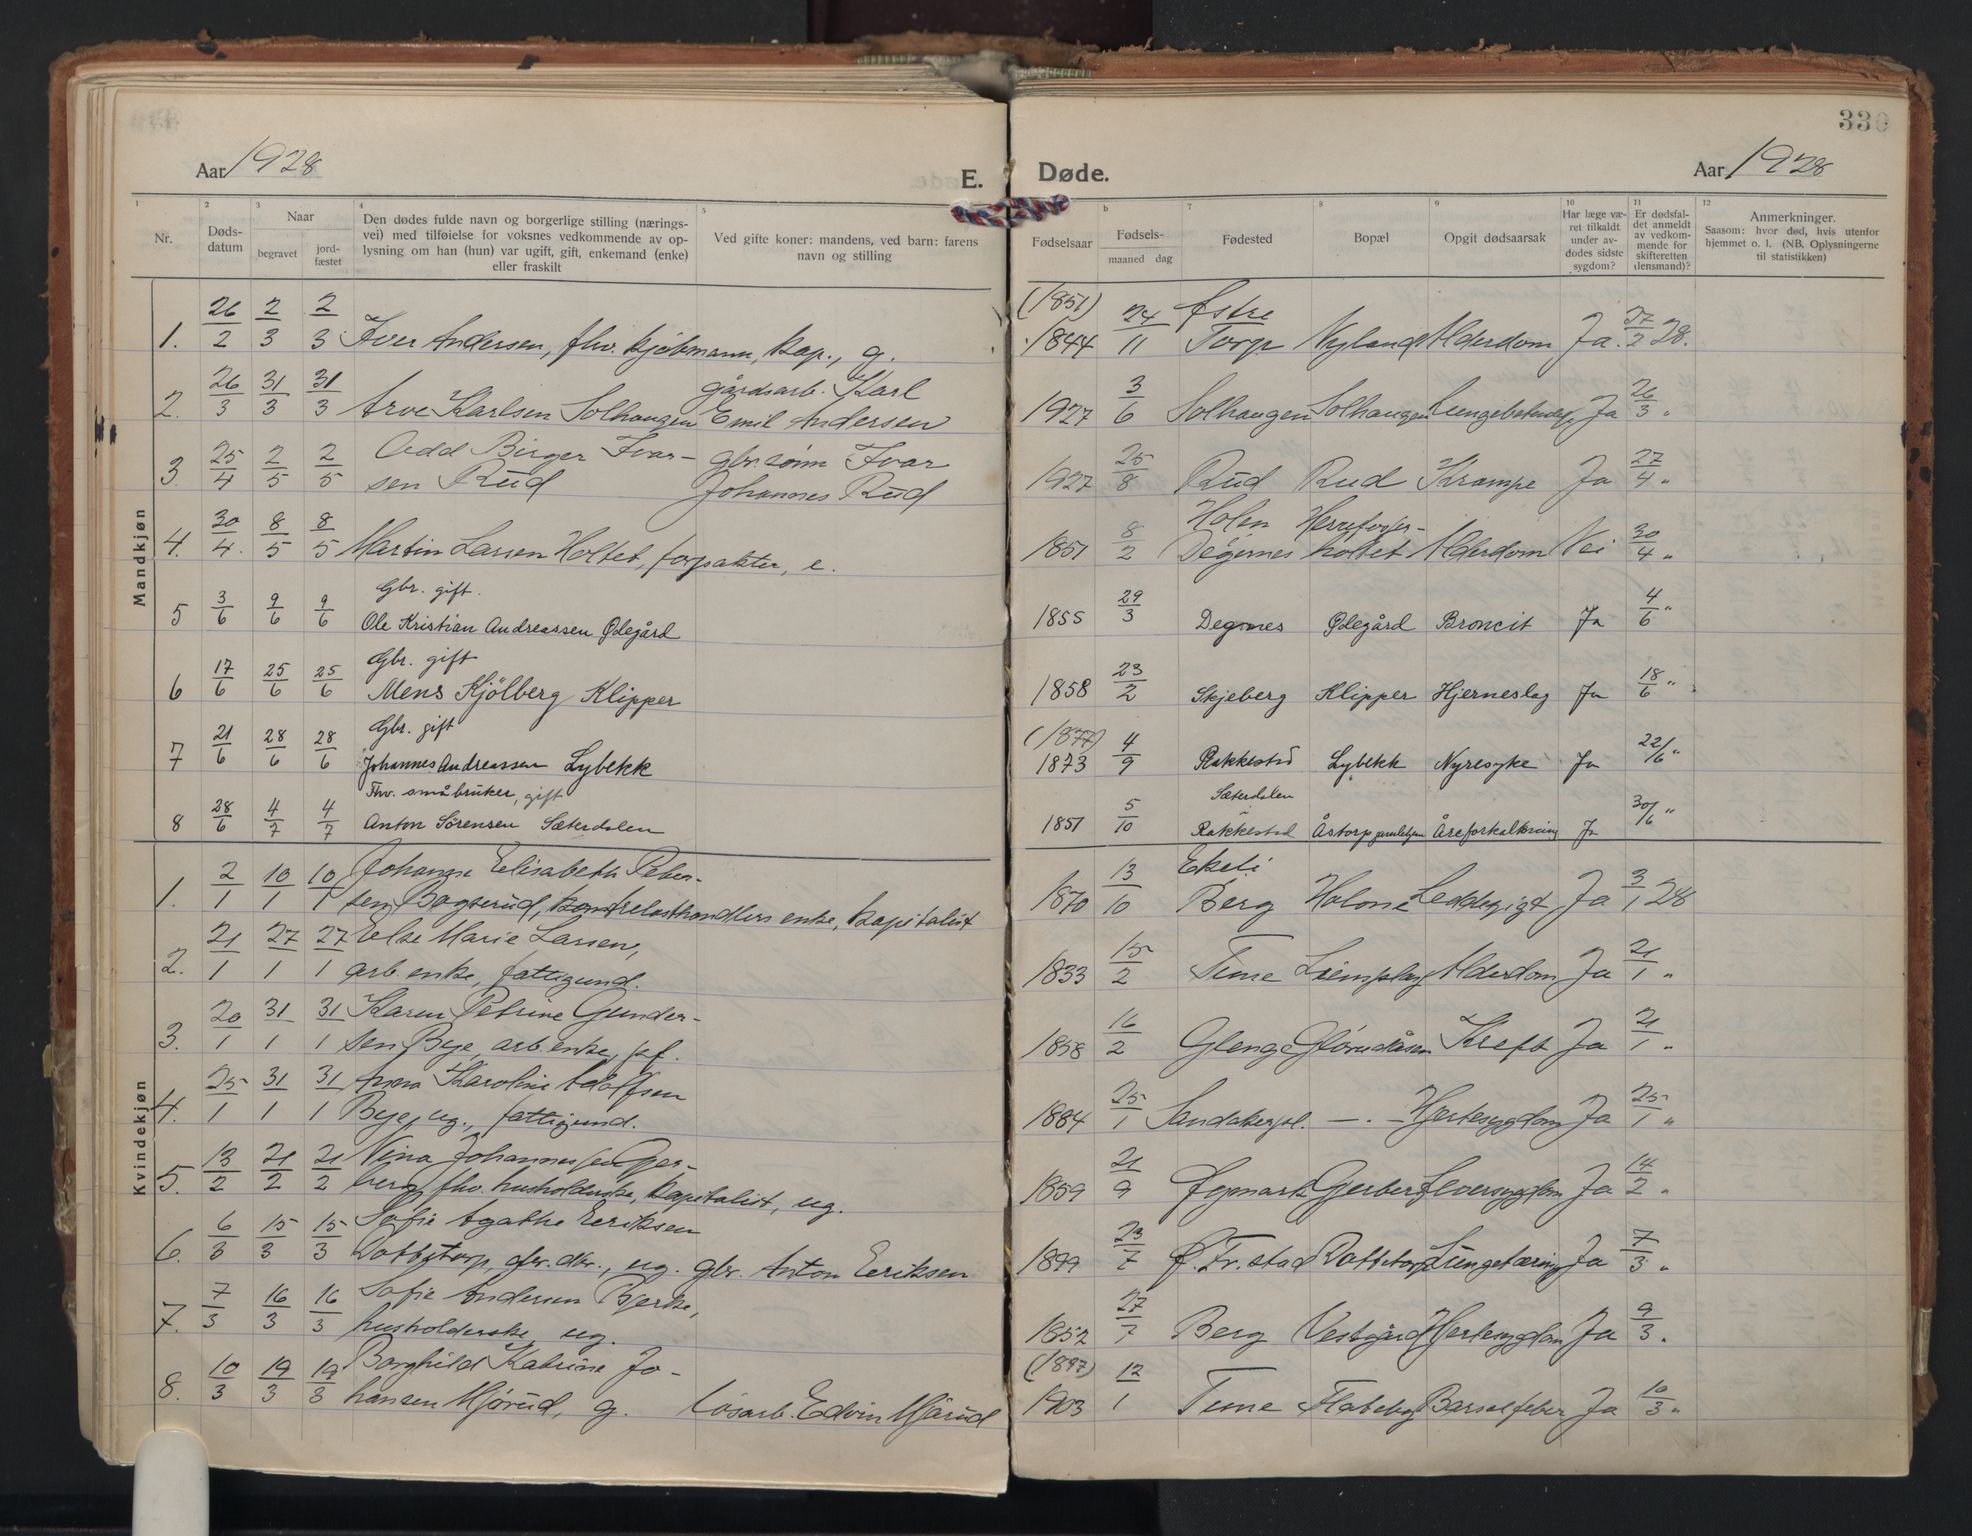 330
Aar 1928
E.
Døde.
Aar 1928
1 2 3 4 5 6 7 8 9 10 11 12
Nr.
Døds-
datum
Naar
begravet
jord-
fæstet
Den dødes fulde navn og borgerlige stilling (nærings-
vei) med tilføielse for voksnes vedkommende av op-
lysning om han (hun) var ugift, gift, enkemand (enke)
eller fraskilt
Ved gifte koner: mandens, ved barn: farens
navn og stilling
Fødselsaar
Fødsels-
maaned dag
Fødested
Bopæl
Opgit dødsaarsak
Har læge væ-
ret tilkaldt
under av-
dødes sidste
sygdom?
Er dødsfal-
det anmeldt
av vedkom-
mende for
skifteretten
(lensmand)?
Anmerkninger.
Saasom: hvor død, hvis utenfor
hjemmet o. l. (NB. Oplysningerne
til statistikken)
Mandkjøn
(1851) Østre
1. 26/2 2/3 2/3 Iver Andersen, fhv. kjøbmann, kap., g. 1844 24/11 Torp Nyland Alderdom Ja 27/2 28.
gårdsarb. Karl
2. 26/3 31/3 31/3 Arve Karlsen Solhaugen Emil Andersen 1927 3/6 Solhaugen Solhaugen Ja 26/3 "
Odd Birger Ivar- gbr. sønn Ivar
3. 25/4 2/5 2/5 sen Rud Johannes Rud 1927 25/8 Rud Rud Krampe Ja 27/4 "
Holen
4. 30/4 8/5 8/5 Martin Larsen Holtet, forpakter, e. 1851 8/2 Degernes holtet Alderdom Nei 30/4 "
Gbr. gift.
5 3/6 9/6 9/6 Ole Kristian Andreassen Ødegård 1855 29/3 Degernes Ødegård Broncit Ja 4/6 "
Gbr. gift
6 17/6 25/6 25/6 Mens Kjölberg Klipper 1858 23/2 Skjeberg Klipper Hjerneslag Ja 18/6 "
Gbr. gift (1877)
7 21/6 28/6 28/6 Johannes Andreassen Lybekk 1873 4/9 Rakkestad Lybekk Nyresyke Ja 22/6 "
Fhv. småbruker, gift Sæterdalen
8 28/6 4/7 4/7 Anton Sørensen Sæterdalen 1851 5/10 Rakkestad Åstorp gamlehjem Åreforkalkning Ja 30/6 "
Kvindekjøn
Johanne Elisabeth Peter- Ekeli
1. 2/1 10/1 10/1 sen Bogserud, enke, kapitalist 1870 13/10 Berg Holone Leddegigt Ja 3/1 28
Else Marie Larsen,
2. 21/1 27/1 27/1 arb. enke, fattigund. 1833 15/2 Tune Alderdom Ja 21/1 "
Karen Petrine Gunder-
3. 20/1 31/1 31/1 sen Bye, arb. enke, 1858 16/2 Glenge Kreft Ja 21/1 "
Anna Karoline Adolfsen
4. 25/1 31/1 31/1 Bye, ug., fattigund. 1884 25/1 Sandakerpl. —.— Hjertesygdom Ja 25/1 "
Nina Johannessen Ger-
5. 13/2 21/2 21/2 berg, fhv. husholderske, kapitalist, ug. 1859 21/9 Øymark Gerberg Leversygdom Ja 14/2 "
Sofie Agathe Eriksen
6. 6/3 15/3 15/3 gbr. dtr., ug. gbr. Anton Eriksen 1899 23/7 Ø. Fr.stad Lungetæring Ja 7/3 "
Sofie Andersen Bjerke,
7. 7/3 16/3 16/3 husholderske, ug. 1852 27/7 Berg Vestgård Hjertesygdom Ja 9/3.
Borghild Katrine Jo- (1897)
8. 10/3 19/3 19/3 hansen Mjørud, g. løsarb. Edvin Mjørud 1903 12/1 Tune Barselfeber Ja 10/3 "